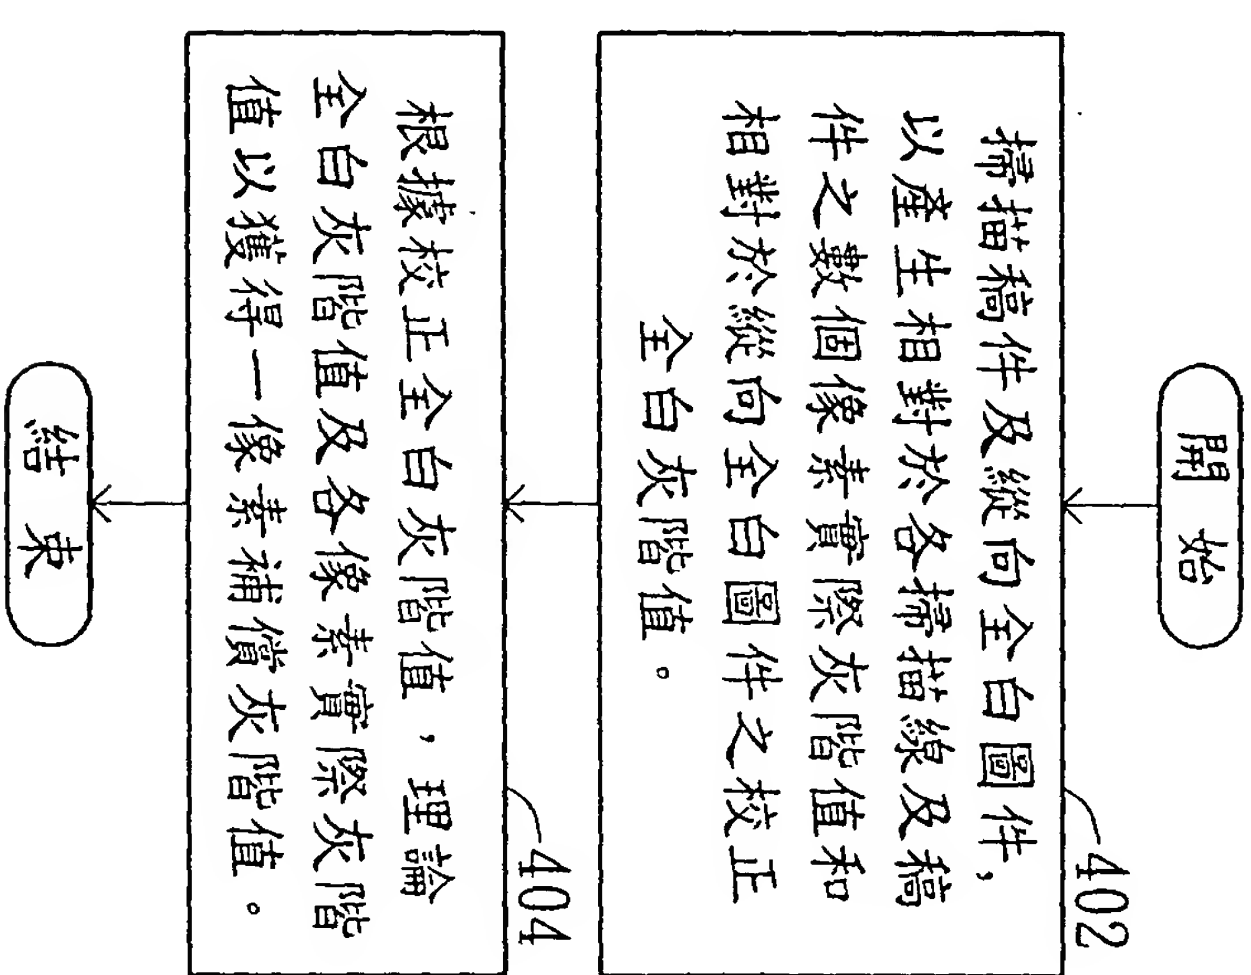 開始
402
掃描稿件及縱向全白圖件,
以產生相對於各掃描線及稿
件之數個像素實際灰階值和
相對於縱向全白圖件之校正
全白灰階值。
404
根據校正全白灰階值,理論
全白灰階值及各像素實際灰階
值以獲得一像素補償灰階值。
結束